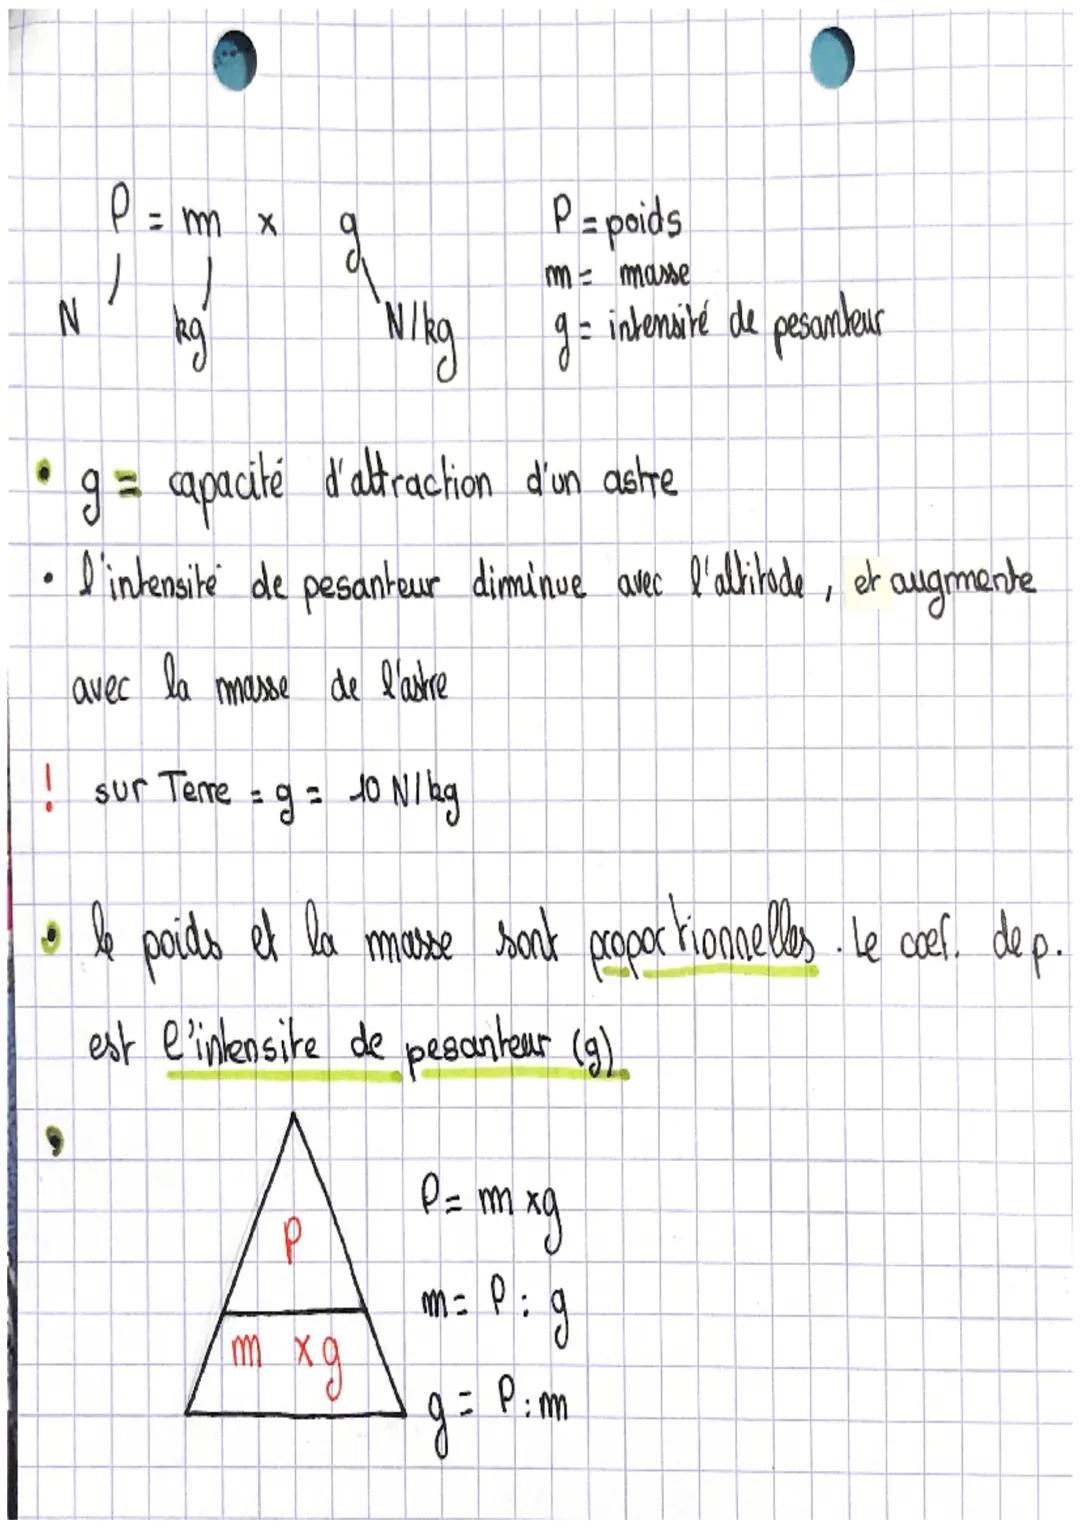 P = m x g
N kg N/kg
P = poids
m = masse
g = intensité de pesanteur
• g = capacité d'attraction d'un astre
• l'intensité de pesanteur diminue avec l'altitude, et augmente
avec la masse de l'astre
! sur Terre = g = 10 N/kg
• le poids et la masse sont proportionnelles. Le coef. de p.
est l'intensite de pesanteur (g)
•
P
m x g
P = m x g
m = P : g
g = P : m